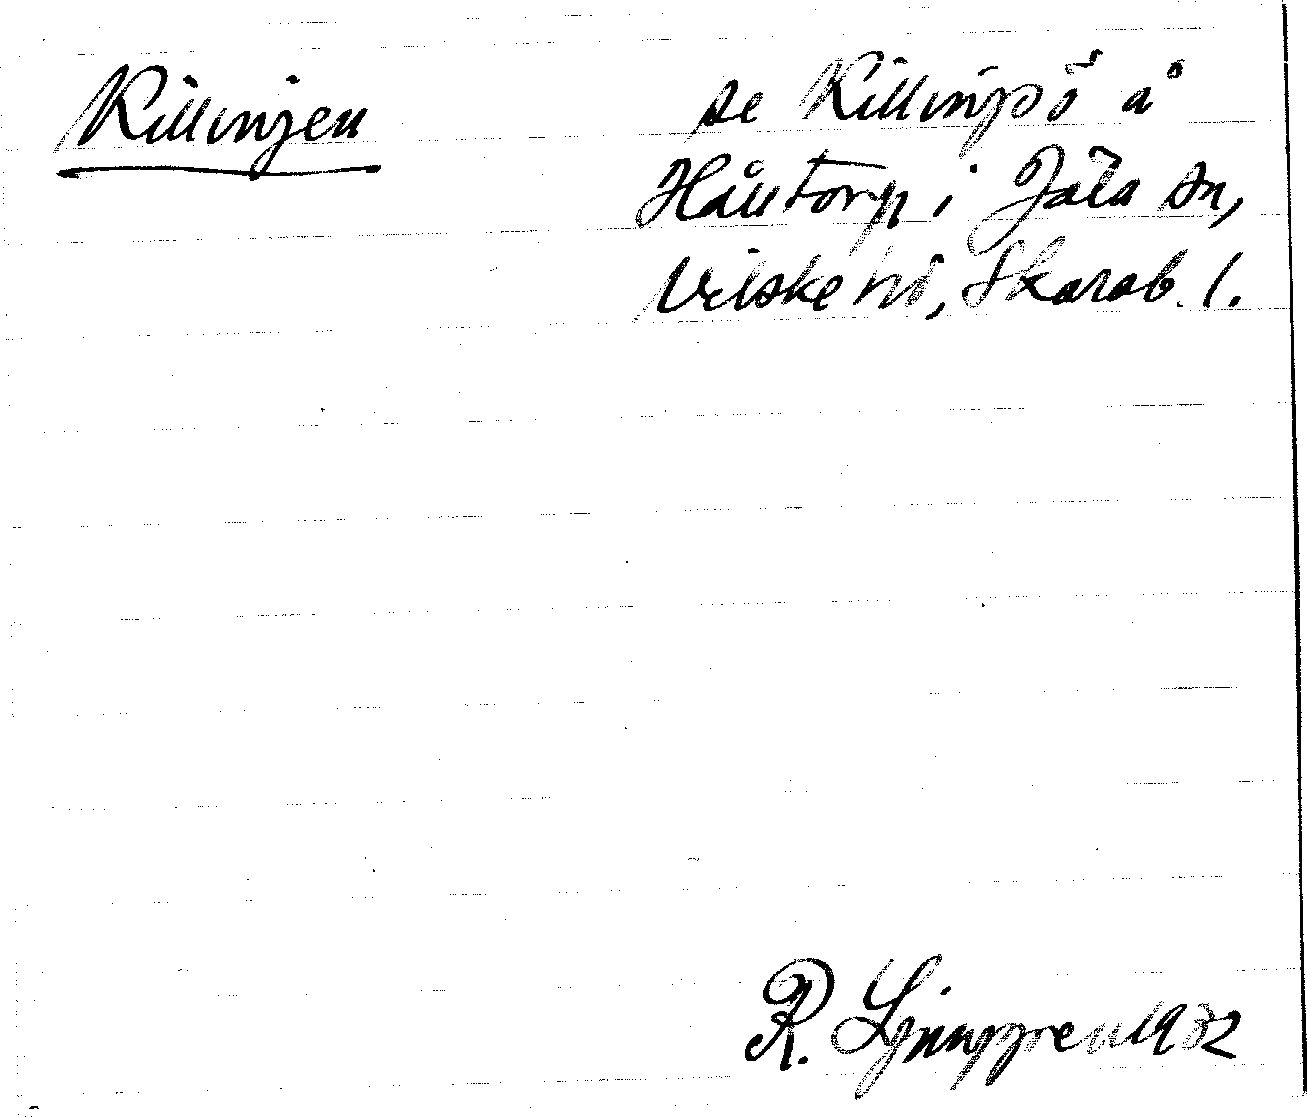 Killingen
se Killingsö å
Håntorp i Jäla sn,
Vilske hd, Skarab. l.
R. Ljunggren 1932